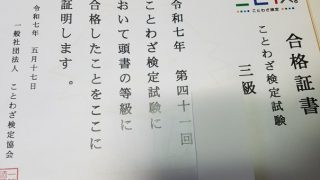 ことわざ検定
合格証書
ことわざ検定試験
三級
令和七年 第四十一回
ことわざ検定試験に
おいて頭書の等級に
合格したことをここに
証明します。
令和七年 五月十七日
一般社団法人 ことわざ検定協会